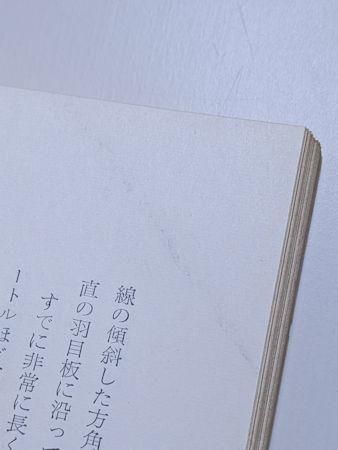 線の傾斜した方角
直の羽目板に沿っ
すでに非常に長く
ートルほど